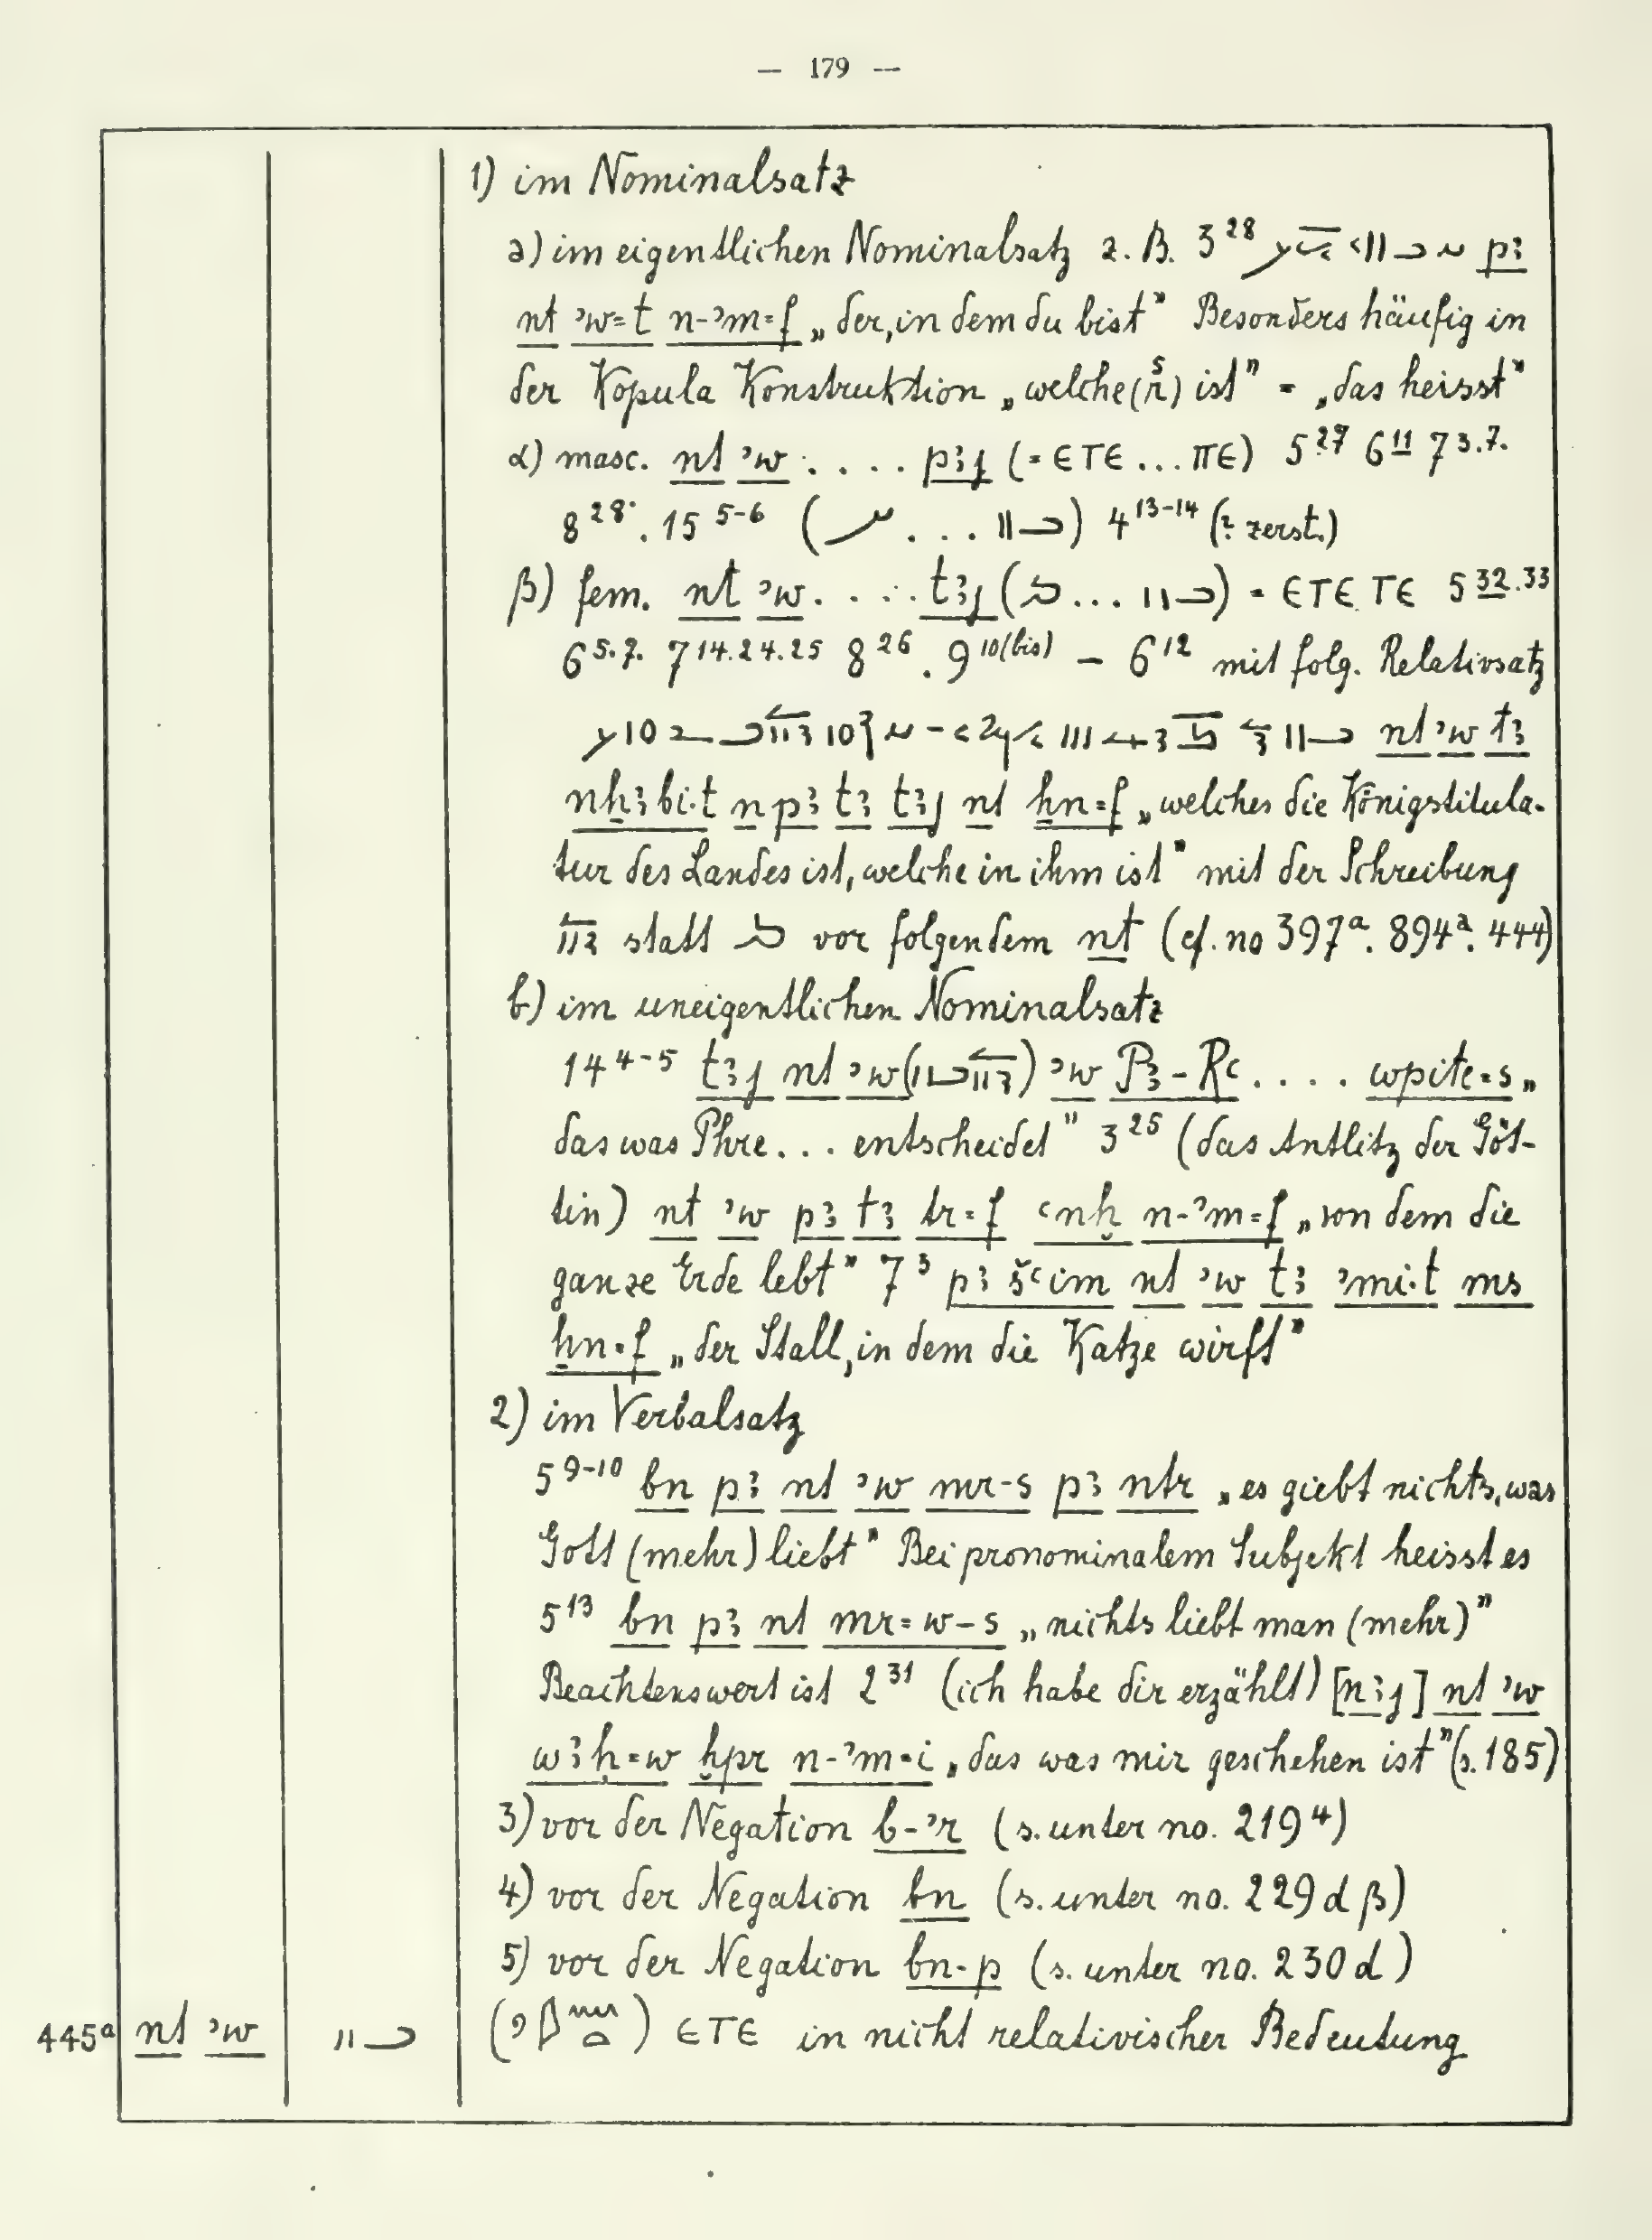 — 179 —
1) im Nominalsatz
a) im eigentlichen Nominalsatz z. B. 3²⁸ pꜣ
nt ꜥw=t n-ꜥm=f „der, in dem du bist" Besonders häufig in
der Kopula Konstruktion „welche(r) ist" = „das heisst"
α) masc. nt ꜥw . . . . pꜣj (= ⲉⲧⲉ ... ⲡⲉ) 5²⁷ 6¹¹ 7³·⁷·
8²⁸· . 15⁵⁻⁶ ( ... ) 4¹³⁻¹⁴ (? zerst.)
β) fem. nt ꜥw . . . . tꜣj ( ... ) = ⲉⲧⲉ ⲧⲉ 5³²·³³
6⁵·⁷· 7¹⁴·²⁴·²⁵ 8²⁶ . 9¹⁰⁽ᵇⁱˢ⁾ – 6¹² mit folg. Relativsatz
nt ꜥw tꜣ
nẖꜣbi·t n pꜣ tꜣ tꜣj nt ẖn=f „welches die Königstitula-
tur des Landes ist, welche in ihm ist" mit der Schreibung
statt vor folgendem nt (cf. no 397ᵃ. 894ᵃ. 444)
b) im uneigentlichen Nominalsatz
14⁴⁻⁵ tꜣj nt ꜥw ( ) ꜥw Pꜣ-Rꜥ . . . . wpite=s „
das was Phre ... entscheidet" 3²⁵ (das Antlitz der Göt-
tin) nt ꜥw pꜣ tꜣ tr=f ꜥnḫ n-ꜥm=f „von dem die
ganze Erde lebt" 7³ pꜣ šꜥim nt ꜥw tꜣ ꜥmi·t ms
ẖn=f „der Stall, in dem die Katze wirft"
2) im Verbalsatz
5⁹⁻¹⁰ bn pꜣ nt ꜥw mr-s pꜣ ntr „es giebt nichts, was
Gott (mehr) liebt" Bei pronominalem Subjekt heisst es
5¹³ bn pꜣ nt mr=w-s „nichts liebt man (mehr)"
Beachtenswert ist 2³¹ (ich habe dir erzählt) [nꜣj] nt ꜥw
wꜣḥ=w ḫpr n-ꜥm=i „das was mir geschehen ist" (s. 185)
3) vor der Negation b-ꜥr (s. unter no. 219⁴)
4) vor der Negation bn (s. unter no. 229 d β)
5) vor der Negation bn-p (s. unter no. 230 d)
445ᵃ nt ꜥw ( ) ⲉⲧⲉ in nicht relativischer Bedeutung